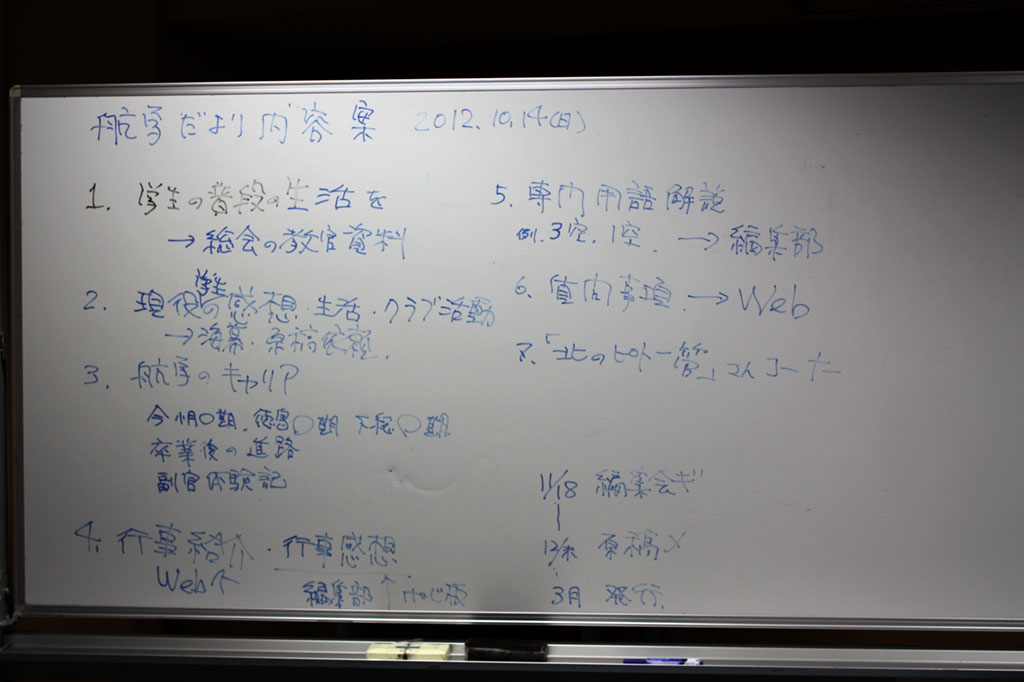 航学だより内容案 2012.10.14(日)
1. 学生の普段の生活を
→ 総会の教官資料
学生
2. 現役の感想・生活・クラブ活動
→ 海幕・原稿依頼
3. 航学のキャリア
今小月〇期、徳島〇期 下総〇期
卒業後の進路
副官体験記
4. 行事紹介・行事感想
Webへ
編集部 ↑
5. 専門用語解説
例. 3空. 1空. → 編集部
6. 質問事項 → Web
7.「北のピトー管」さんコーナー
11/18 編集会ギ
12/末 原稿〆
3月 発行